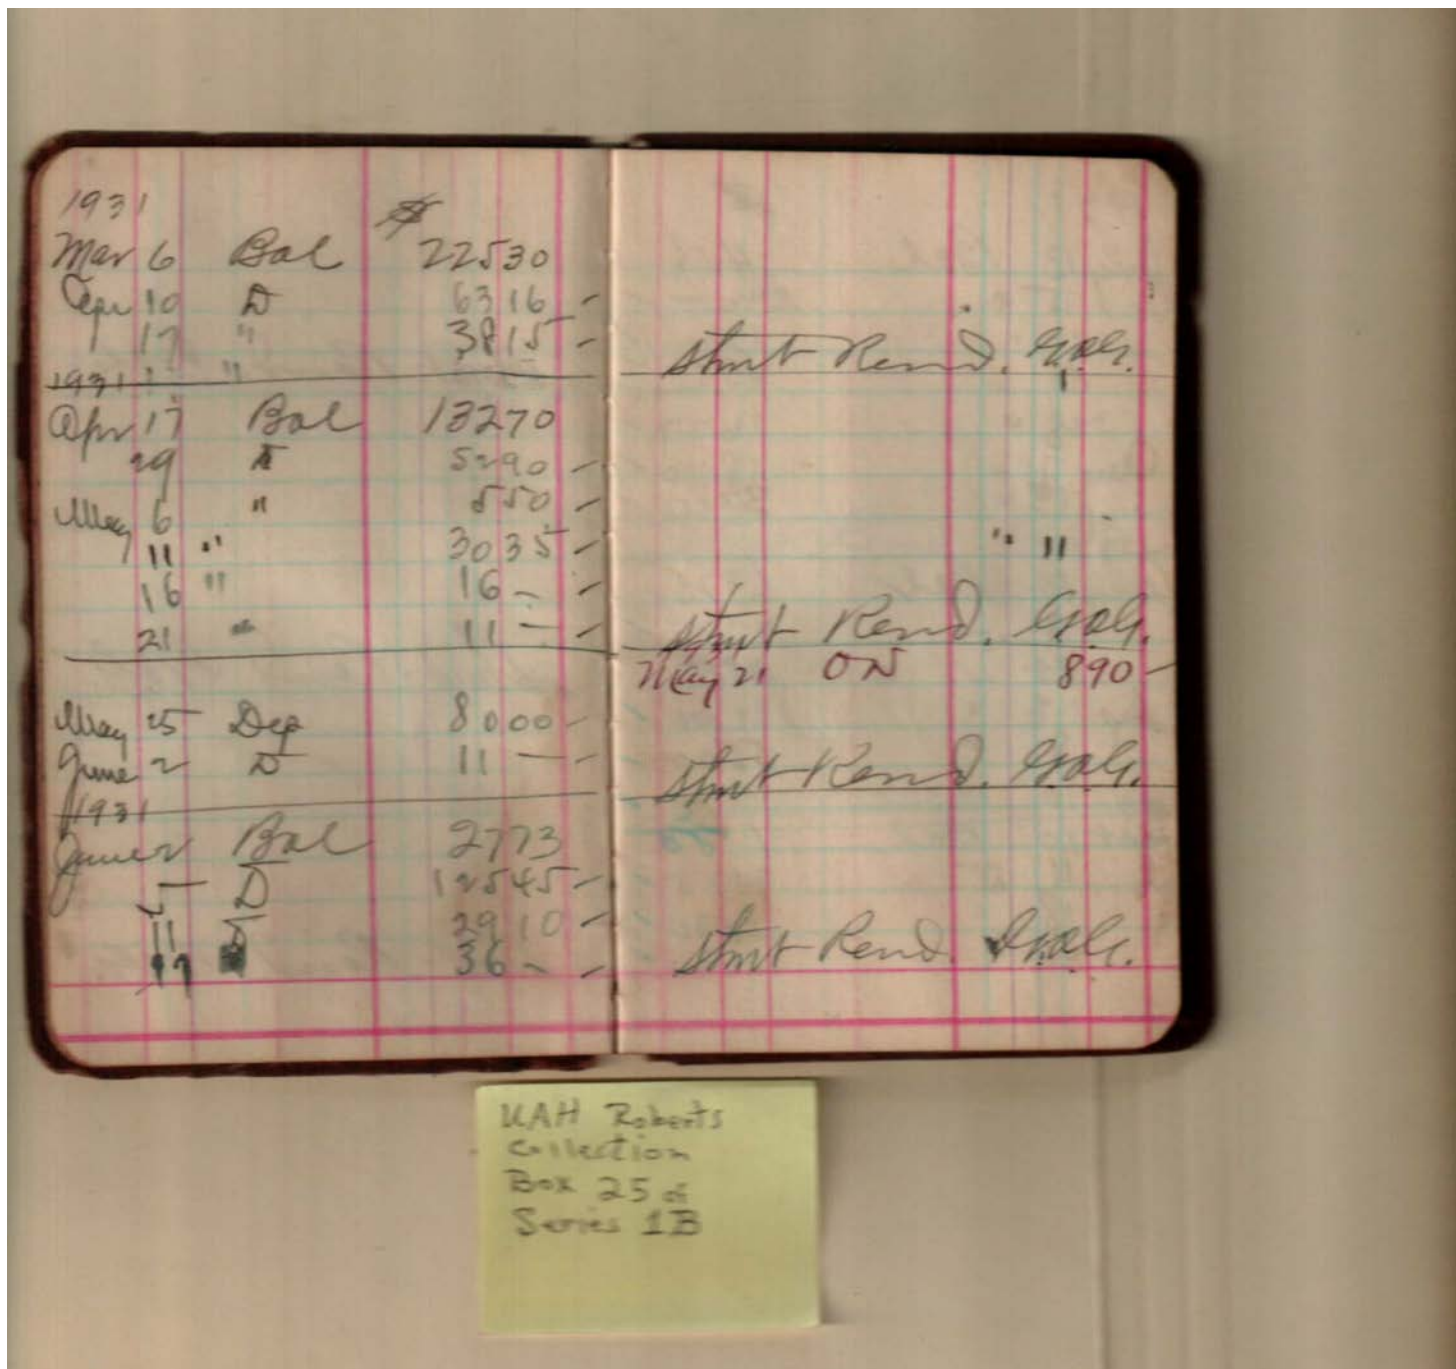 1931
Mar 6 Bal 22530
Apr 10 D 6316 -
17 " 3815 -
1931 "
Apr 17 Bal 13270
29 D 5290 -
May 6 " 550 -
11 " 3035 -
16 " 16 - -
21 " 11 - -
May 25 Dep 8000 -
June 2 D 11 - -
1931
June 2 Bal 2773
5 D 12545 -
11 2910 -
17 36 - -
Stmt Rend.
" "
Stmt Rend.
1931
May 21 ON 890 -
Stmt Rend.
Stmt Rend.
UAH Roberts
Collection
Box 25 of
Series 1B